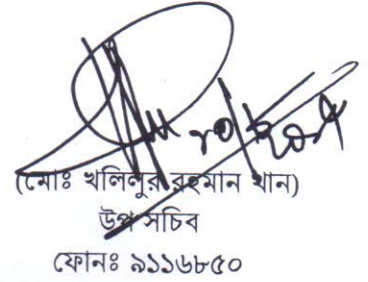 (মোঃ খলিলুর রহমান খান)
উপ সচিব
ফোনঃ ৯১১৬৮৫০